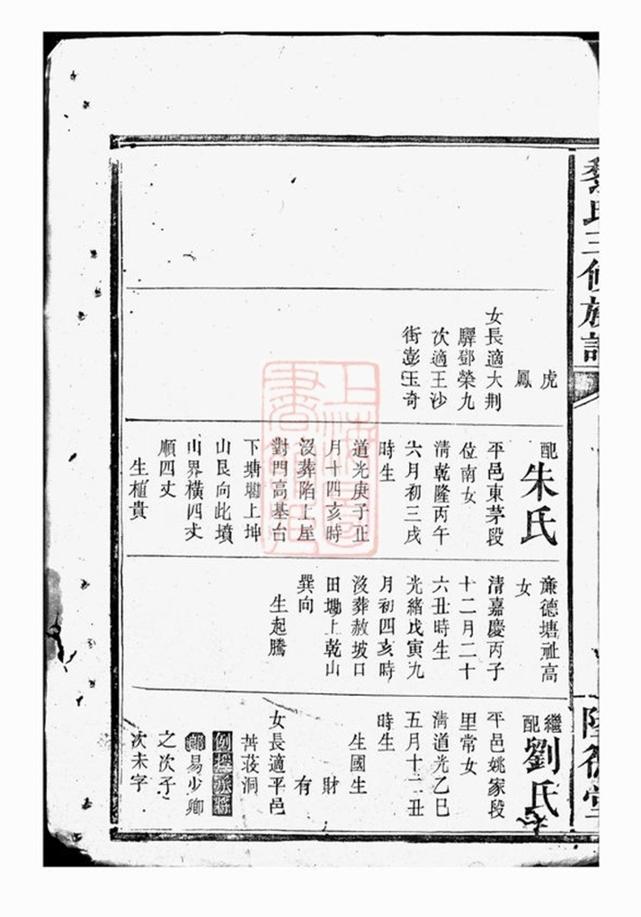 三修族譜
虎
鳳
女長適大荆
驛鄧榮九
次適王沙
街彭玉奇
配朱氏
平邑東茅段
位南女
淸乾隆丙午
六月初三戌
時生
道光庚子正
月十四亥時
沒葬陷上屋
對門高基台
下塘墈上坤
山艮向此墳
山界橫四丈
順四丈
生植貴
亷德塘祉高
女
淸嘉慶丙子
十二月二十
六丑時生
光緒戊寅九
月初四亥時
沒葬赦坡口
田墈上乾山
巽向
生起騰
繼配劉氏
平邑姚家段
里常女
淸道光乙巳
五月十二丑
時生
生國生
財
有
女長適平邑
茀荍洞
易少卿
之次子
次未字
上海圖書館